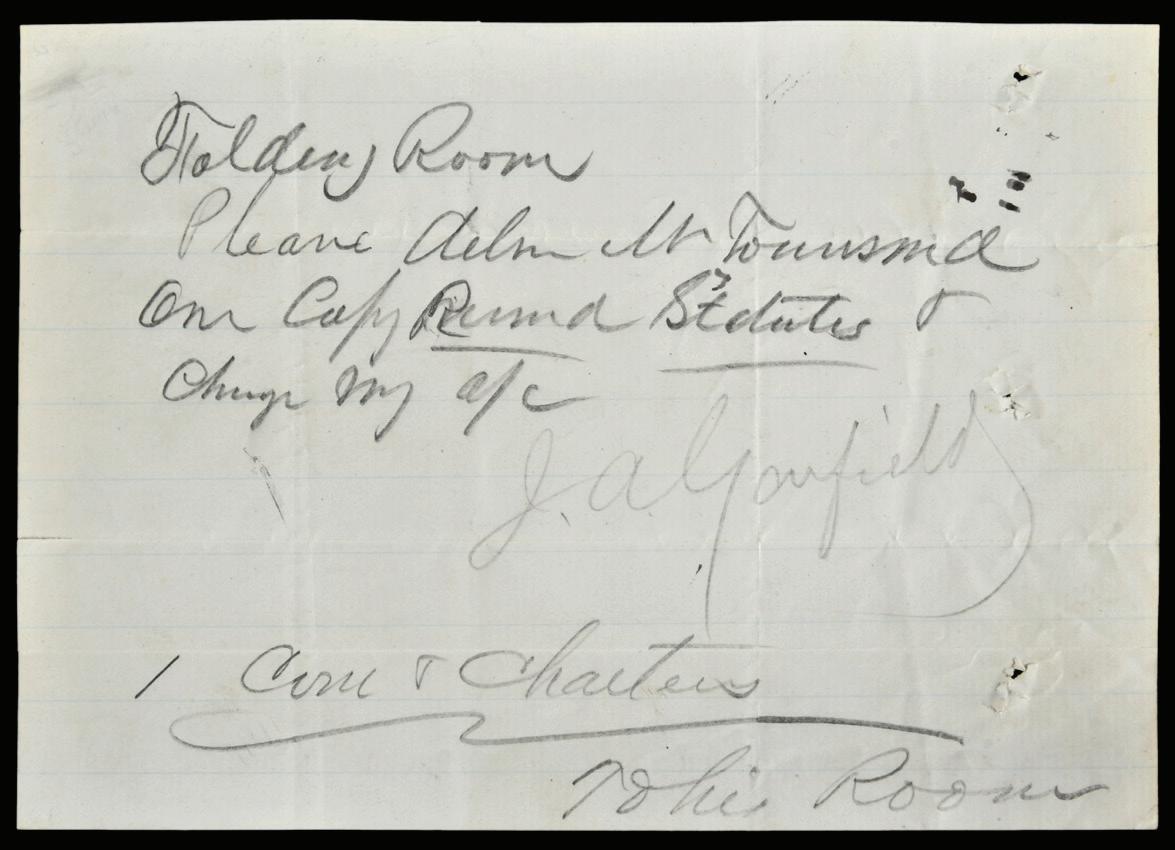 Folding Room
Please deliver Mr Townsend
One Copy Revised Statutes &
Charge my a/c
J. A. Garfield
1 Con & Charters
To his Room